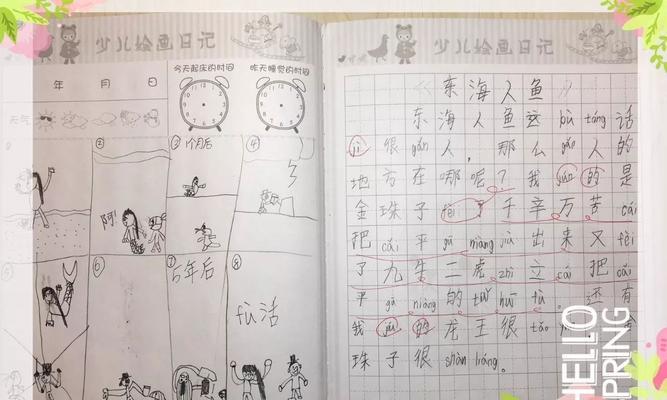 少儿绘画日记
今天起床的时间
昨天睡觉的时间
年 月 日
天气
②
③ 1个月后
④
阿
⑤
⑥
⑦ 百年后
⑧
fù活
少儿绘画日记
东海人鱼
东海人鱼这 bù táng 话
jì 很 gǎn 人，那么 gǎo 人的
地方在哪呢？我 jué 的是
金珠子 fèi 了千辛万苦 cái
把 cái 平 gū niàng jiù 出来又 fèi
了九牛二虎 zhī 立 cái 把 cái
平 gū niàng 的 tuǐ huī fù。还有
我 jué 的龙王很 tǎo
珠子很 shàn liáng。
HELLO
SPRING